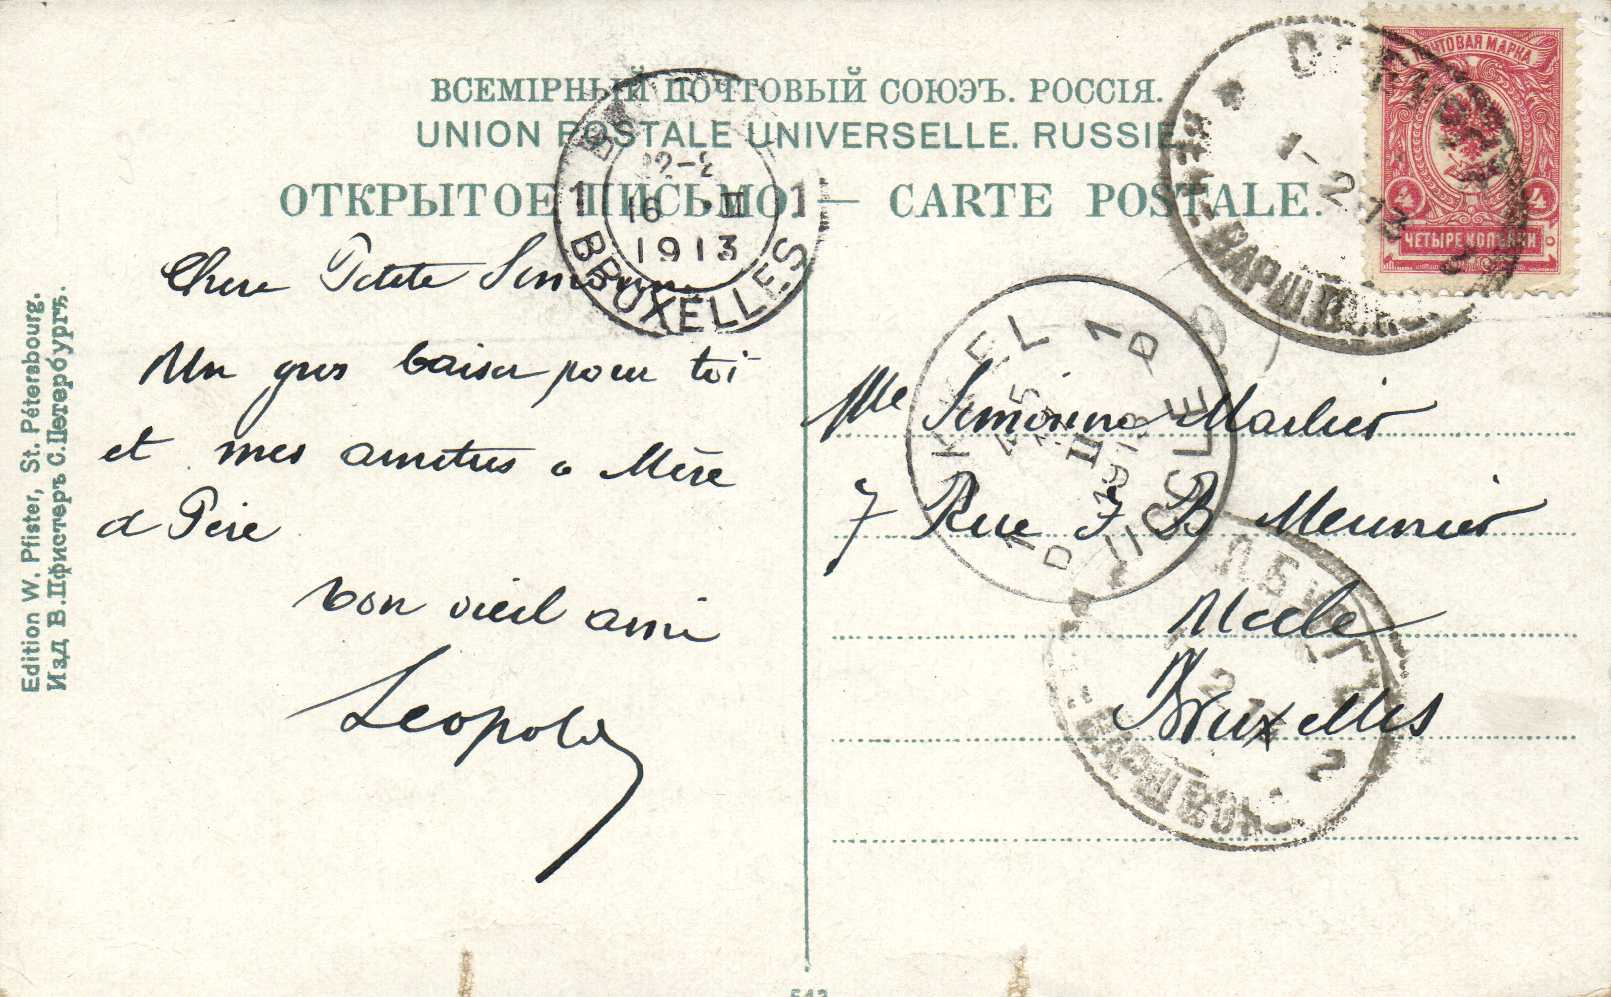 ВСЕМІРНЫЙ ПОЧТОВЫЙ СОЮЗЪ. РОССІЯ.
UNION POSTALE UNIVERSELLE. RUSSIE.
ОТКРЫТОЕ ПИСЬМО. — CARTE POSTALE.
ПОЧТОВАЯ МАРКА
4 4
ЧЕТЫРЕ КОПѢЙКИ
1-2-13
ВАРШАВ
1 1
16 II
1913
BRUXELLES
Chere Petite Simonne
Un gros baiser pour toi
et mes amitiés a Mère
et Père
bon vieil ami
Leopold
UKKEL 1 D
II
1913
UCCLE
1 D
Mlle Simonne Marlier
7 Rue J B Meunier
Uccle
Bruxelles
2
Edition W. Pfister, St. Pétersbourg.
Изд В.Пфистеръ С.Петербургъ.
543